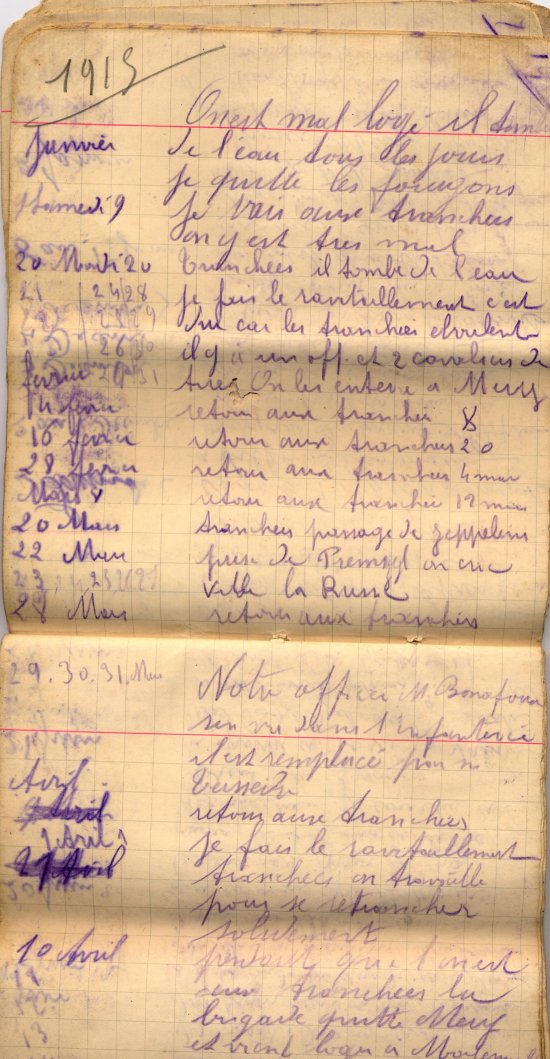 1915
On est mal logé il tombe
Janvier de l'eau tous les jours
je quitte les fourgons
Samedi 9 je vais aux tranchées
on y est tres mal
20 Mardi 20 tranchées il tombe de l'eau
21 24 28 je fais le ravitaillement c'est
29 dur car les tranchées eboulent
26 30 il y a un off. et 2 cavaliers de
fevrier 31 tués On les enterre a Mery
14 fevrier retour aux tranchées 8
16 fevrier retour aux tranchées 20
28 fevrier retour aux tranchées 4 mar
Mars 8 retour aux tranchée 12 mars
20 Mars tranchées passage de zeppelins
22 Mars prise de on crie
23 vive la Russe
28 Mars retour aux tranchées
29. 30. 31. Mars Notre officier M. Bonafous
sen va dans l'Infanterie
il est remplacé par M
Avril
retour aux tranchées
Avril je fais le ravitaillement
tranchées on travaille
pour se retrancher
solidement
10 Avril pendant que l'on est
aux tranchées la
brigade quitte Mery
13 et vient loger à